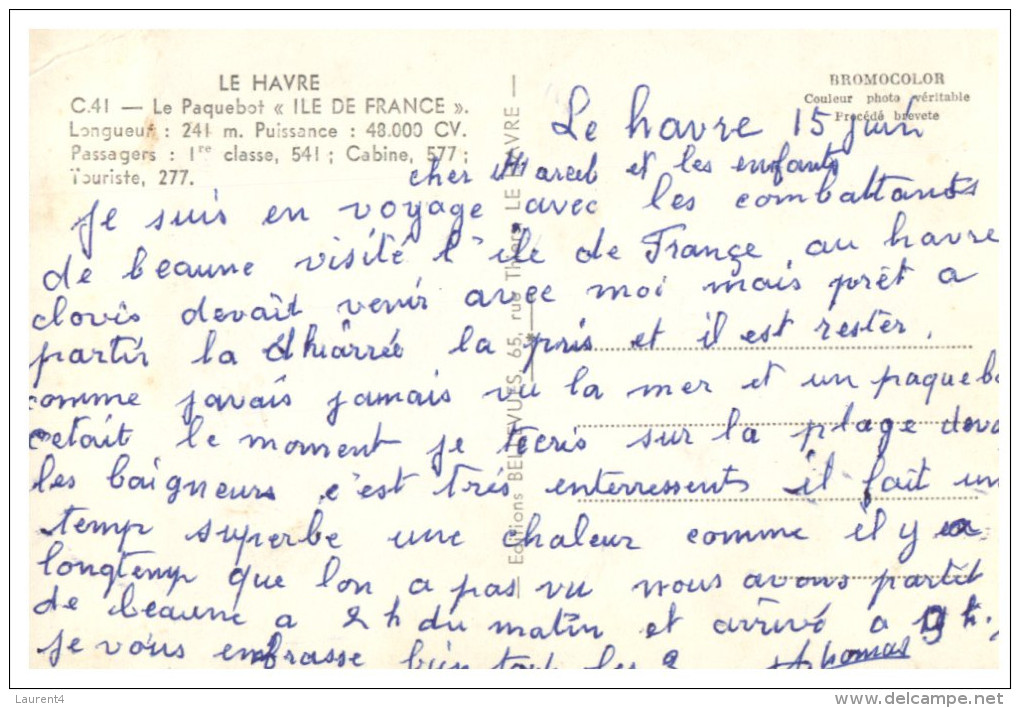 LE HAVRE
C.41 — Le Paquebot « ILE DE FRANCE ».
Longueur : 241 m. Puissance : 48.000 CV.
Passagers : 1re classe, 541 ; Cabine, 577 ;
Touriste, 277.
BROMOCOLOR
Couleur photo véritable
Procédé breveté
— Editions BELLEVUES, 65, rue Thiers LE HAVRE —
Le havre 15 juin
cher Marcel et les enfants
je suis en voyage avec les combattants
de beaune visité l'ile de France au havre
clovis devait venir avec moi mais prêt a
partir la dhiarrée la pris et il est rester.
comme javais jamais vu la mer et un paqueb
cetait le moment je tecris sur la plage deva
les baigneurs c'est trés enterressents il fait un
temp superbe une chaleur comme il y a
longtemp que lon a pas vu nous avons partit
de beaune a 2h du matin et arrivé a 9h.
je vous embrasse bien tout les 2 Thomas
Laurent4
www.delcampe.net